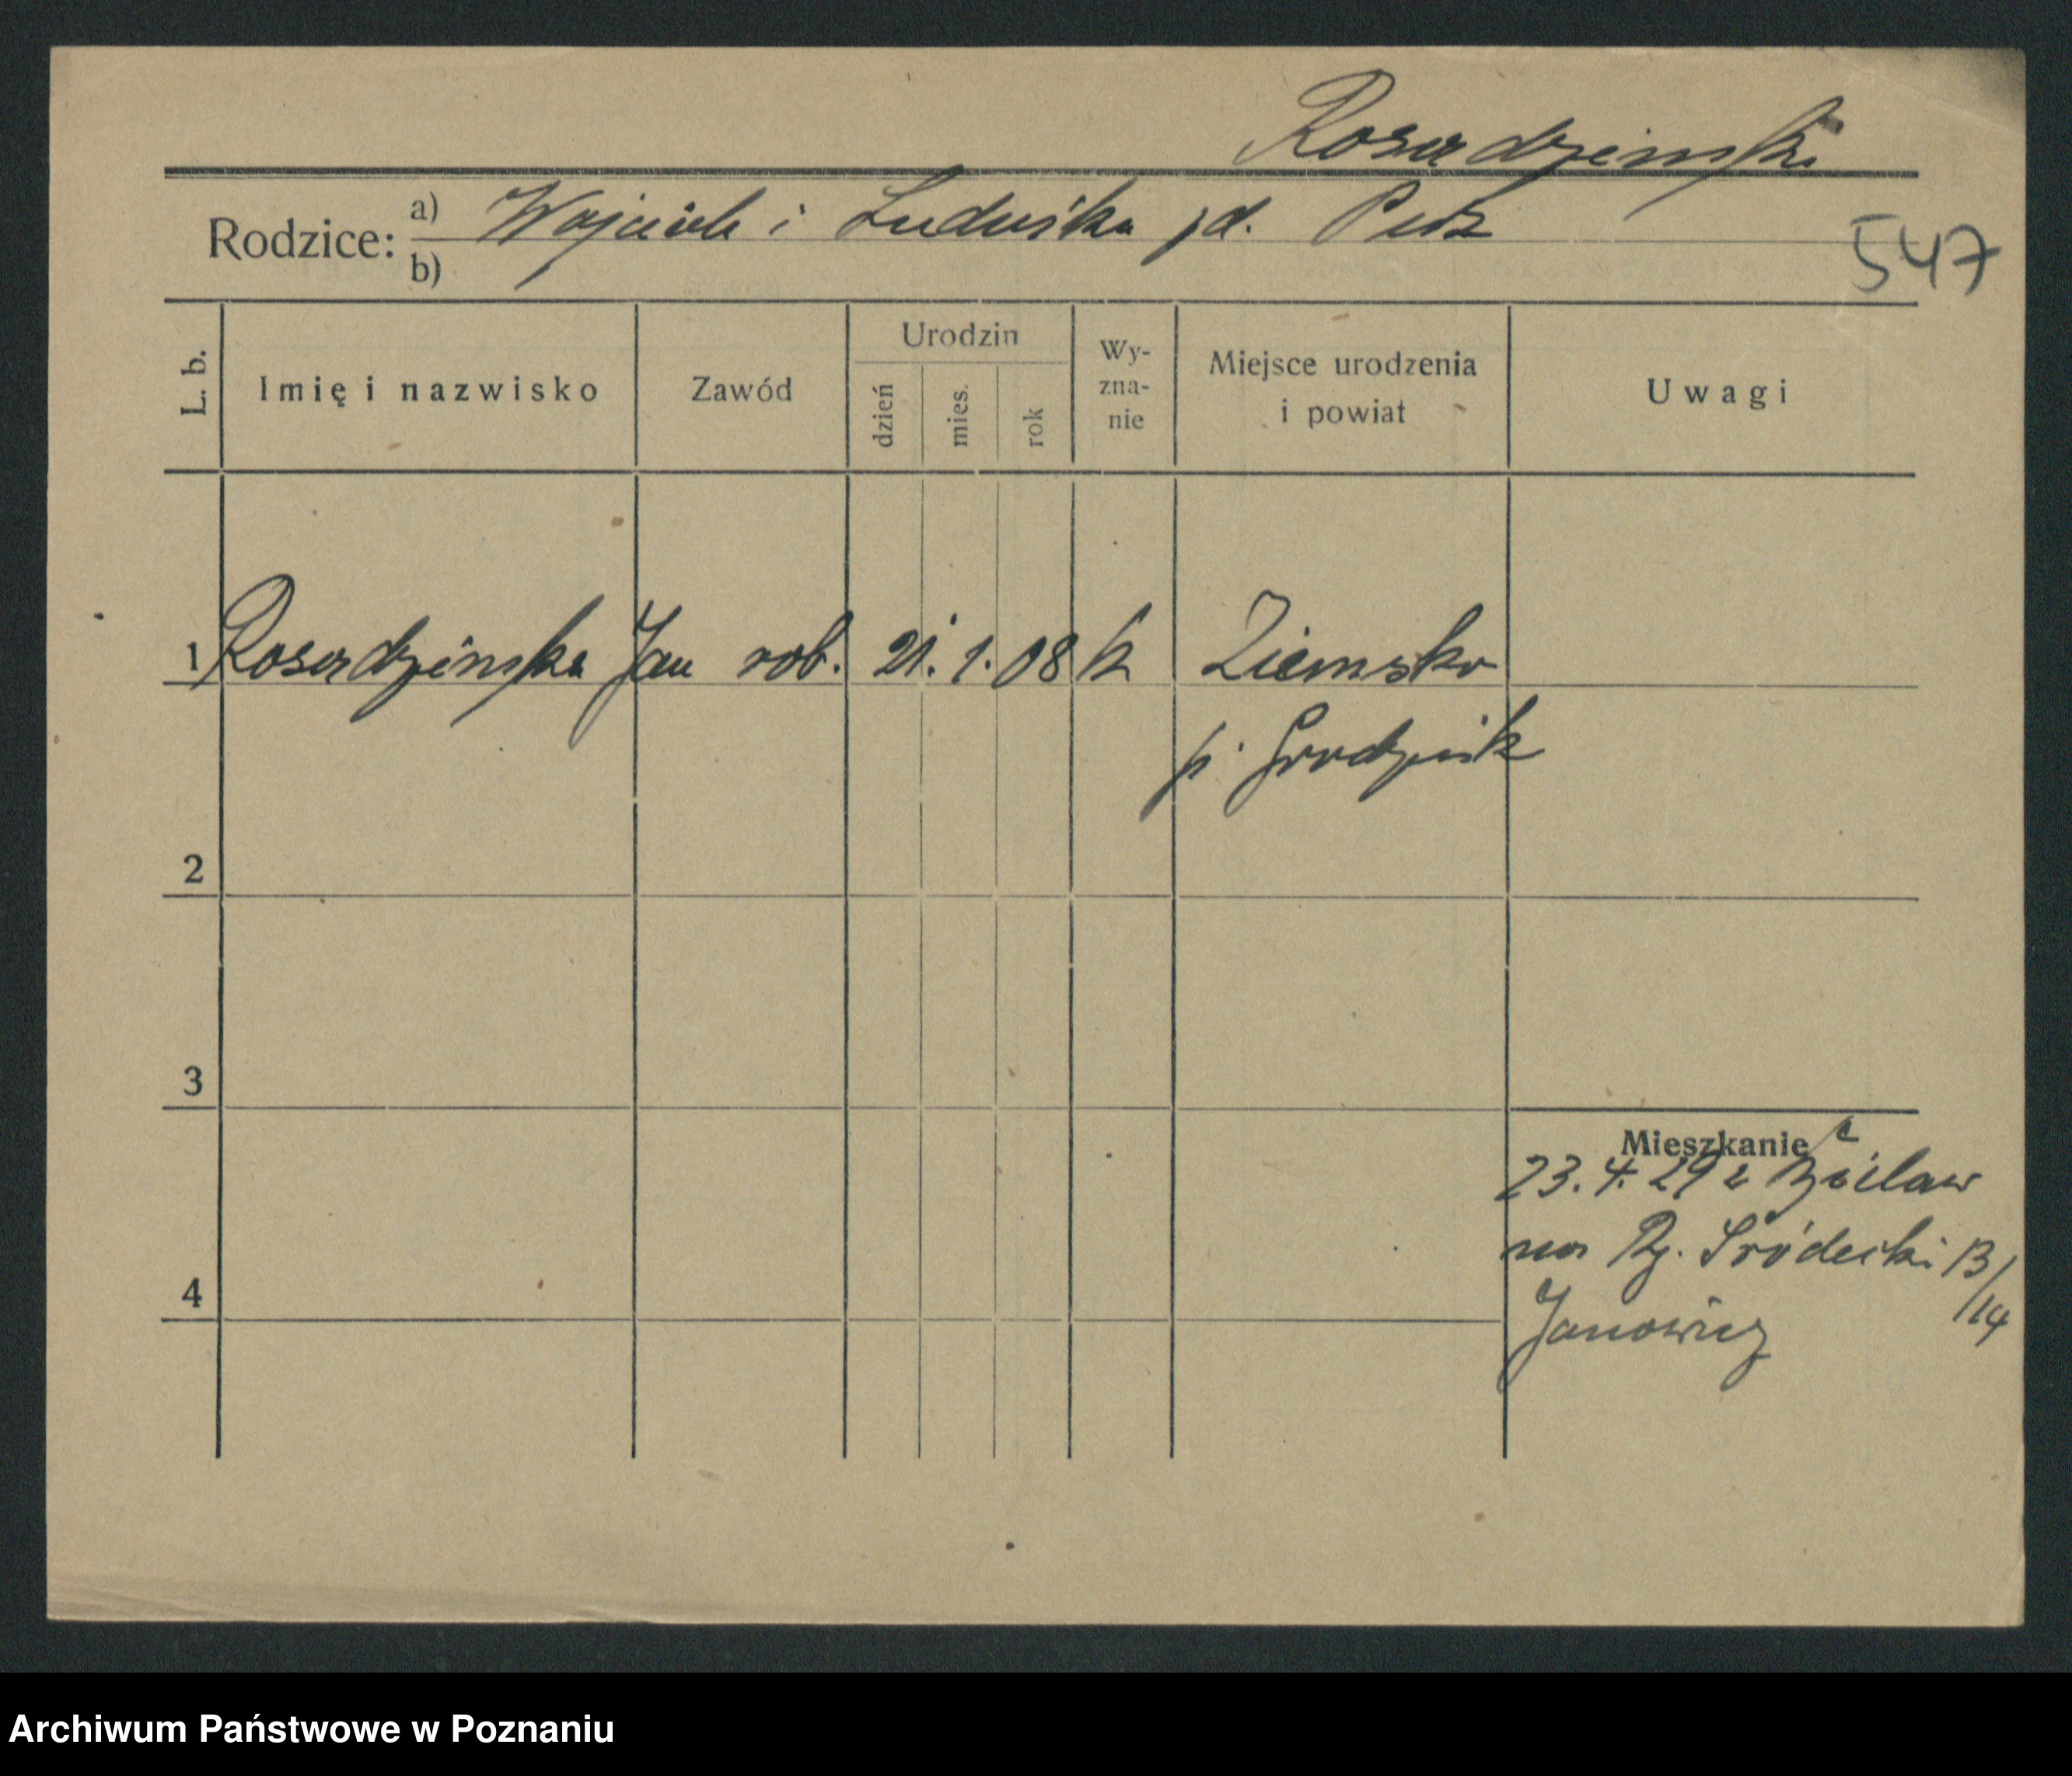 Rosadzinski
Rodzice: a) Wojciech i Ludwika zd. Petz
b)
547
L. b.
Imię i nazwisko
Zawód
Urodzin
dzień
mies.
rok
Wy-
zna-
nie
Miejsce urodzenia
i powiat
Uwagi
1 Jan rob. 21. 1. 08 k Ziemsko
p. Grodzisk
2
3
4
Mieszkanie
23. 4. 29 z
na Ry. Śródecki 13/14
Janowicz
Archiwum Państwowe w Poznaniu